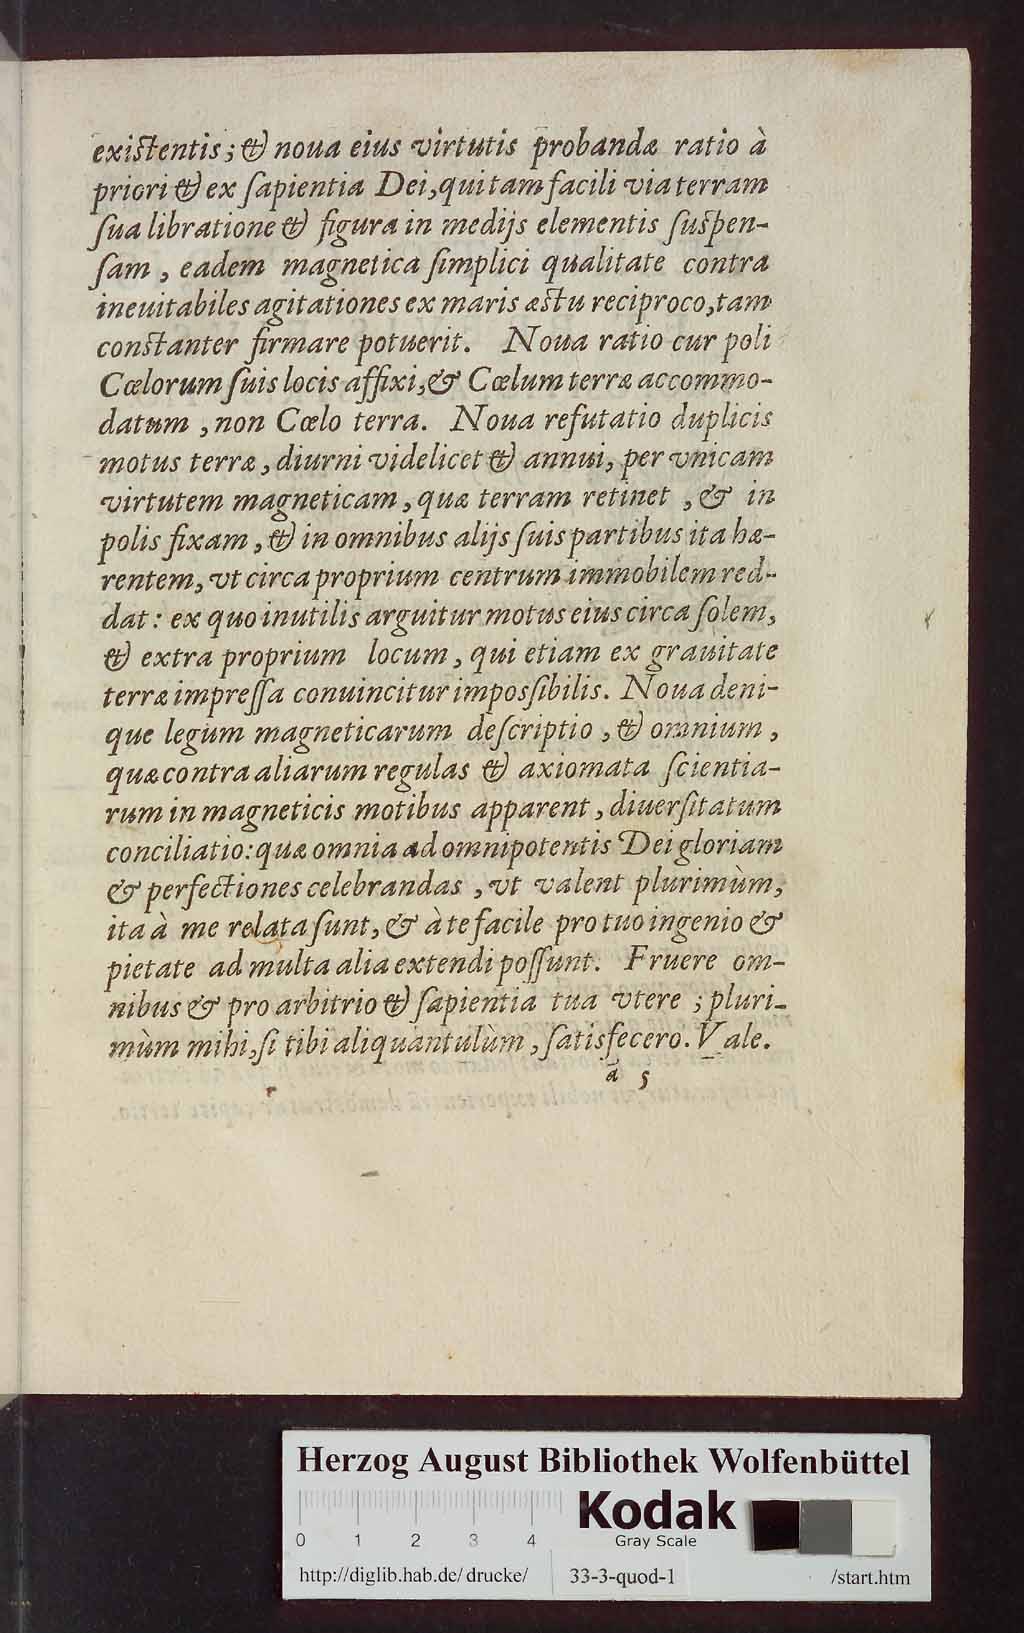 existentis; & noua eius virtutis probandæ ratio à
priori & ex ſapientia Dei, qui tam facili via terram
ſua libratione & figura in medijs elementis ſuſpen-
ſam, eadem magnetica ſimplici qualitate contra
ineuitabiles agitationes ex maris æstu reciproco, tam
constanter firmare potuerit. Noua ratio cur poli
Cœlorum ſuis locis affixi, & Cœlum terræ accommo-
datum, non Cœlo terra. Noua refutatio duplicis
motus terræ, diurni videlicet & annui, per vnicam
virtutem magneticam, quæ terram retinet, & in
polis fixam, & in omnibus alijs ſuis partibus ita hæ-
rentem, vt circa proprium centrum immobilem red-
dat: ex quo inutilis arguitur motus eius circa ſolem,
& extra proprium locum, qui etiam ex grauitate
terræ impreſſa conuincitur imposſibilis. Noua deni-
que legum magneticarum deſcriptio, & omnium,
quæ contra aliarum regulas & axiomata ſcientia-
rum in magneticis motibus apparent, diuerſitatum
conciliatio: quæ omnia ad omnipotentis Dei gloriam
& perfectiones celebrandas, vt valent plurimùm,
ita à me relata ſunt, & à te facile pro tuo ingenio &
pietate ad multa alia extendi poſſunt. Fruere om-
nibus & pro arbitrio & ſapientia tua vtere; pluri-
mùm mihi, ſi tibi aliquantulùm, ſatisfecero. Vale.
a 5
Herzog August Bibliothek Wolfenbüttel
0 1 2 3 4
Kodak
Gray Scale
http://diglib.hab.de/drucke/ 33-3-quod-1 /start.htm